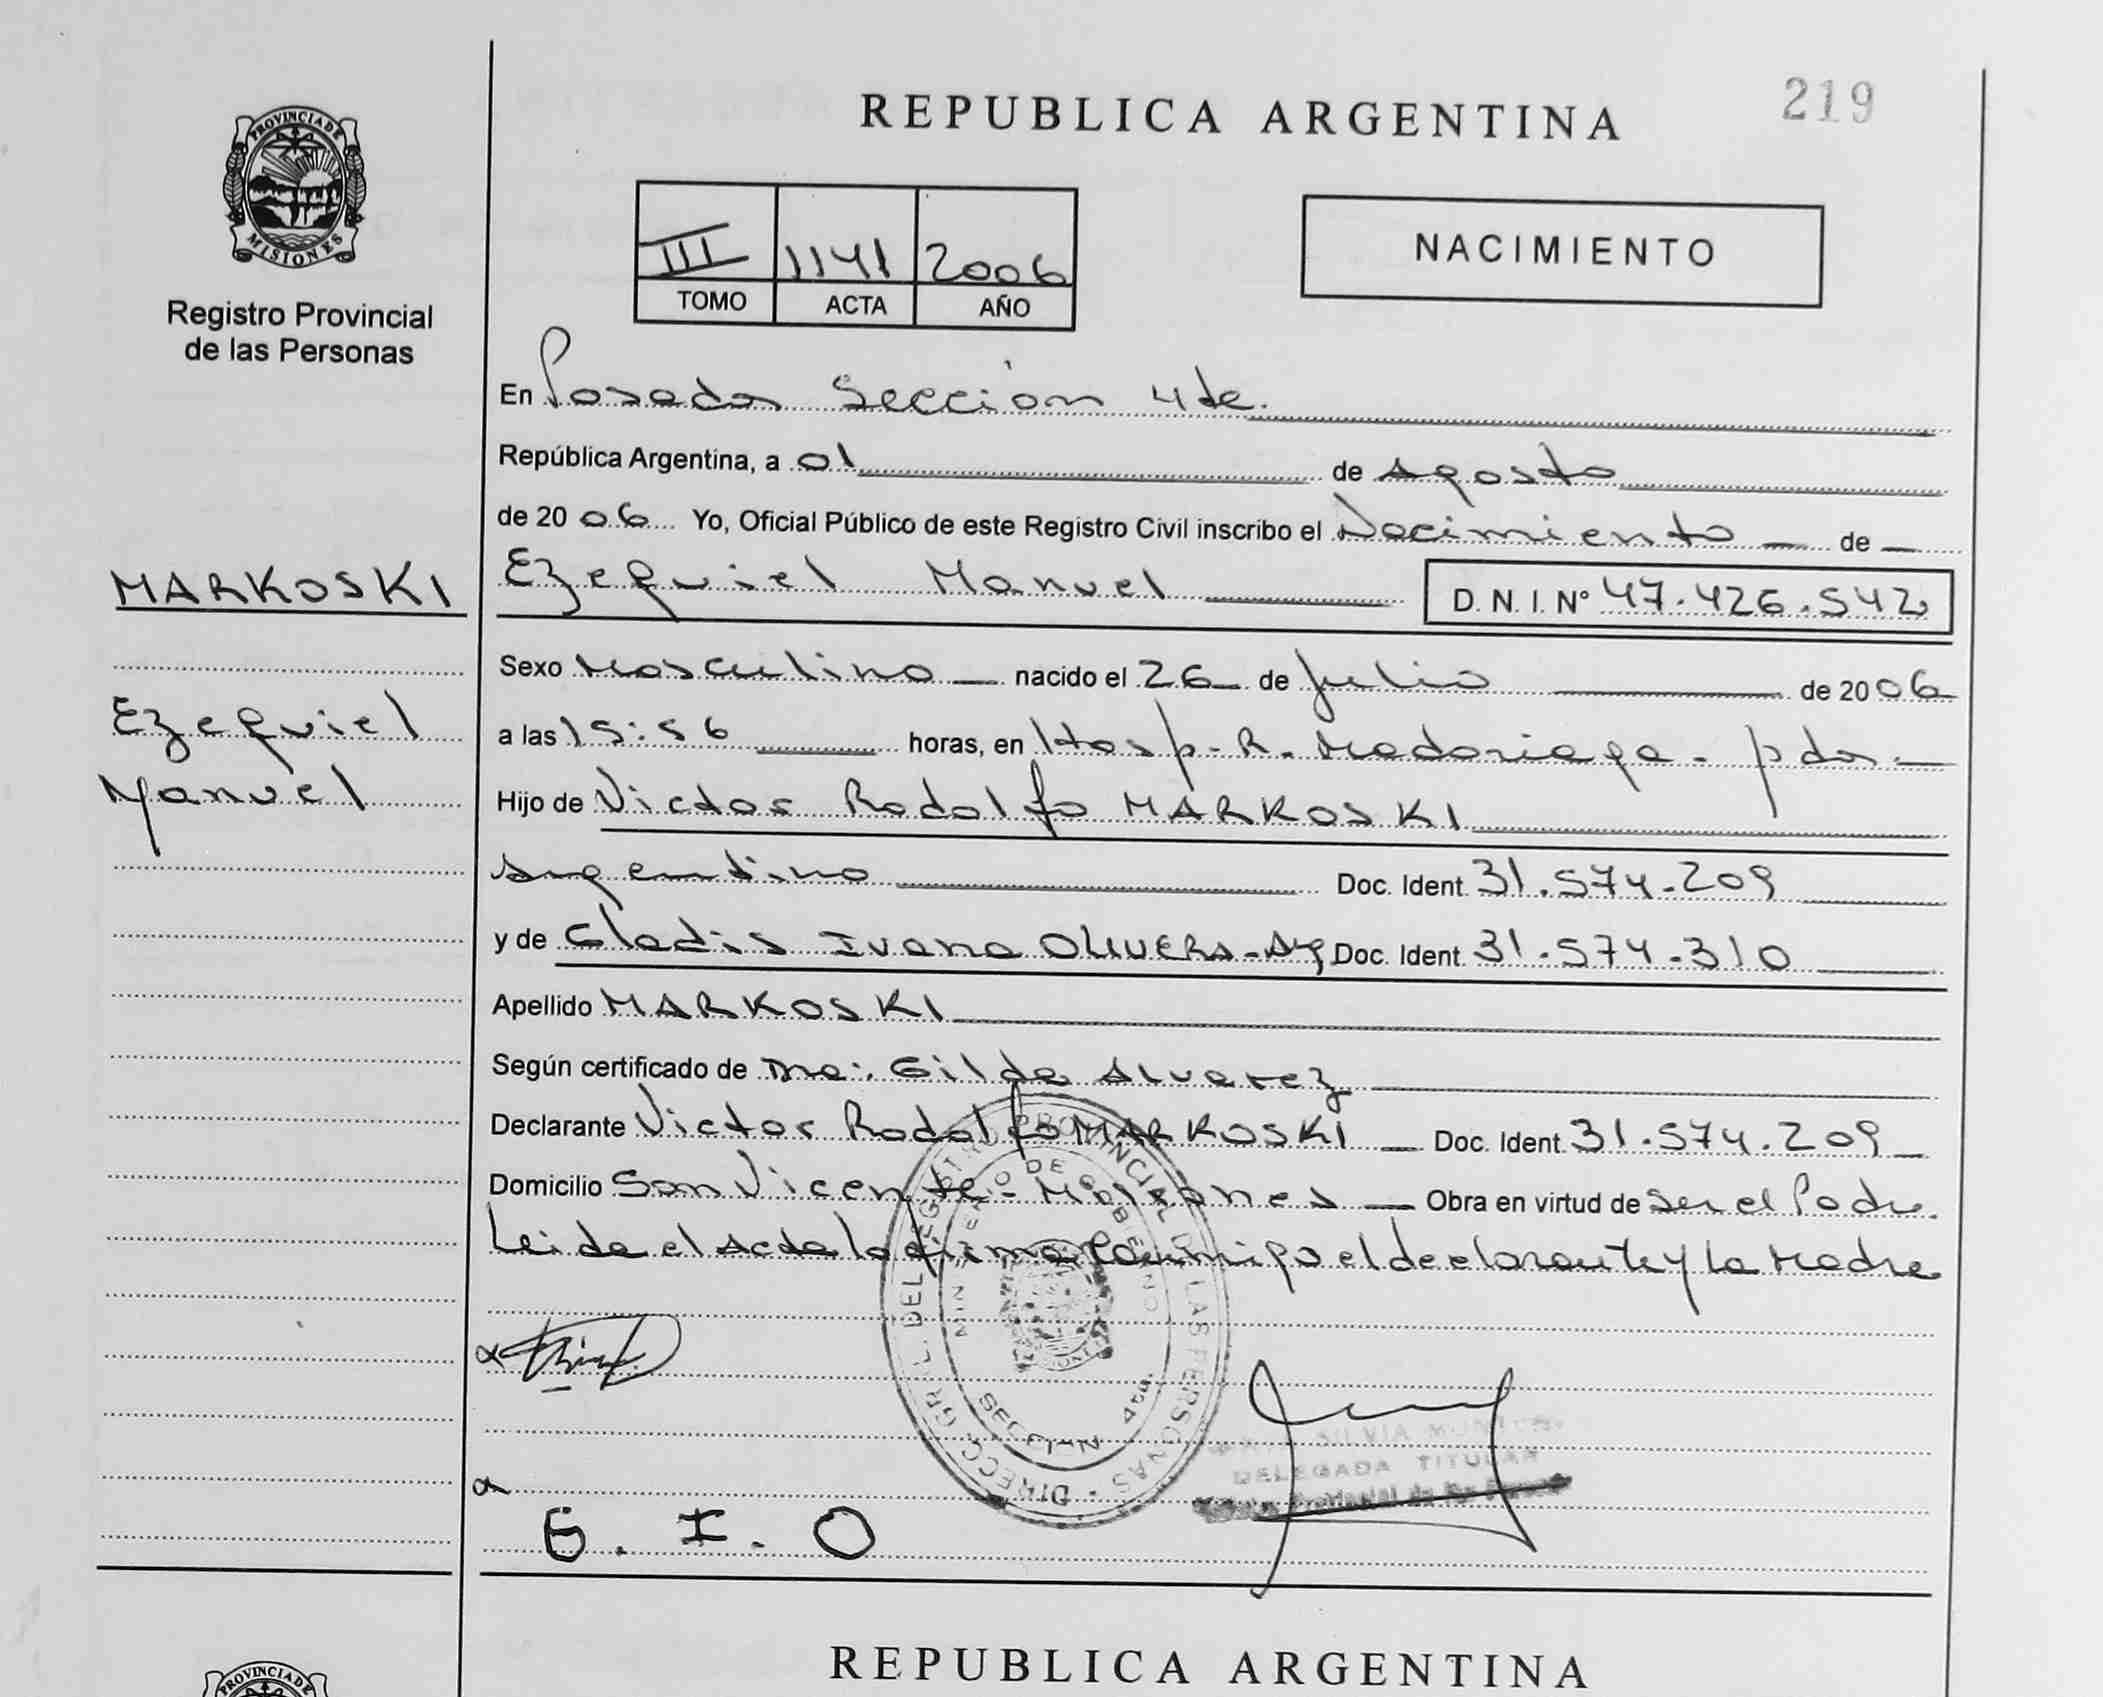 219
REPUBLICA ARGENTINA
PROVINCIA DE
MISIONES
Registro Provincial
de las Personas
III 1141 2006
TOMO ACTA AÑO
NACIMIENTO
En Posadas Sección 4ta.
República Argentina, a 01 de Agosto
de 2006 Yo, Oficial Público de este Registro Civil inscribo el Nacimiento de
MARKOSKI
Ezequiel Manuel D. N. I. N° 47.426.542
Sexo Masculino nacido el 26 de Julio de 2006
Ezequiel
Manuel
a las 15:56 horas, en Hosp. R. Madariaga - pdas.
Hijo de Victor Rodolfo MARKOSKI
Argentino Doc. Ident. 31.574.209
y de Gladis Ivana OLIVERA - Arg Doc. Ident. 31.574.310
Apellido MARKOSKI
Según certificado de Dra.: Gilda Alvarez
Declarante Victor Rodolfo MARKOSKI Doc. Ident. 31.574.209
Domicilio San Vicente - Misiones Obra en virtud de ser el Padre.
Leida el Acta la firma conmigo el declarante y la Madre
DIRECC. GRAL. DEL REGISTRO PROVINCIAL DE LAS PERSONAS
MINISTERIO DE GOBIERNO
SECCION 4ta.
SILVIA
DELEGADA TITULAR
G. I. O
REPUBLICA ARGENTINA
PROVINCIA DE